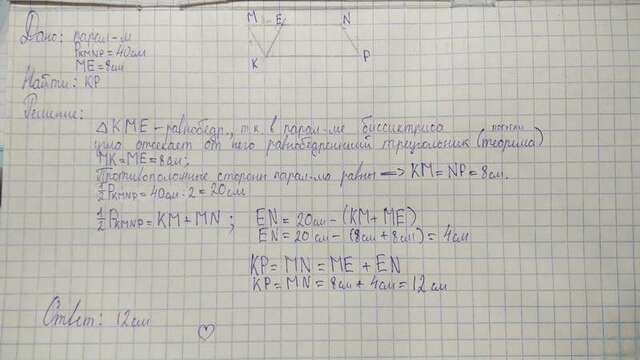 M E N
Дано: парал-м
P KMNP = 40см
ME = 8см
K P
Найти: KP
Решение:
△ KME – равнобедр., т.к. в парал-ме биссиктриса
угла отсекает от него равнобедренний треугольник (теорема)
MK = ME = 8см;
Противоположные стороны парал-ма равны => KM = NP = 8см.
½P KMNP = 40см : 2 = 20см
½P KMNP = KM + MN ; EN = 20см – (KM + ME)
EN = 20см – (8см + 8см) = 4см
KP = MN = ME + EN
KP = MN = 8см + 4см = 12см
Ответ: 12см